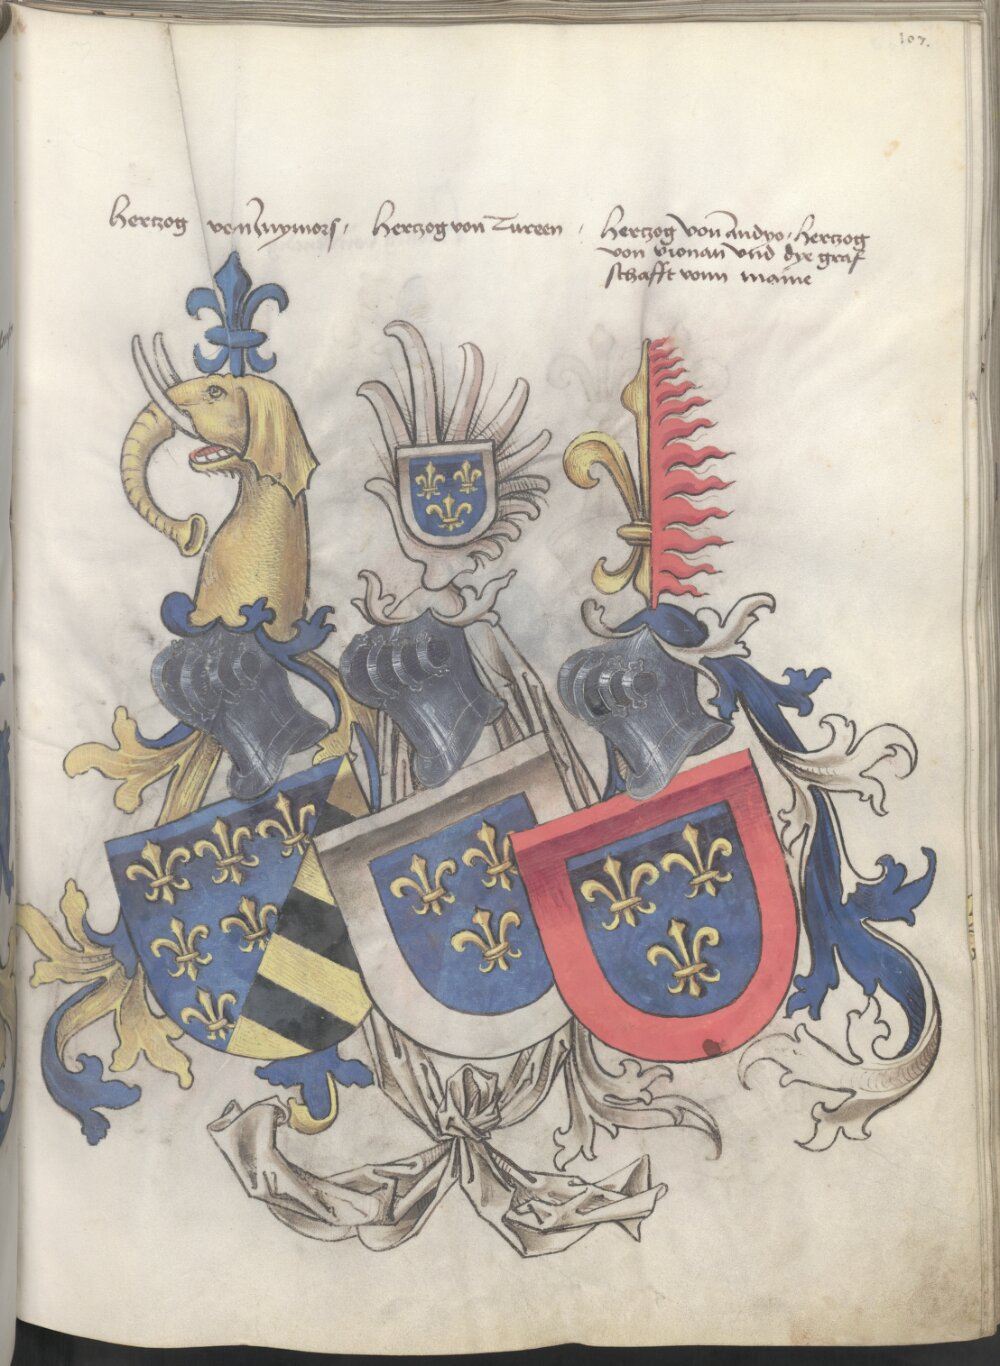 107.
Hertzog von Nuymors · Hertzog von Tureen · Hertzog von Andyo · Hertzog
von vionan vnd dye graf
schafft vonn maine